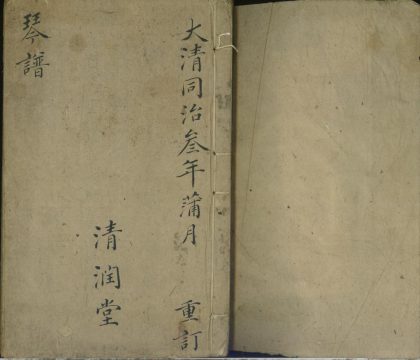 大清同治叁年蒲月 重訂
清润堂
琴譜